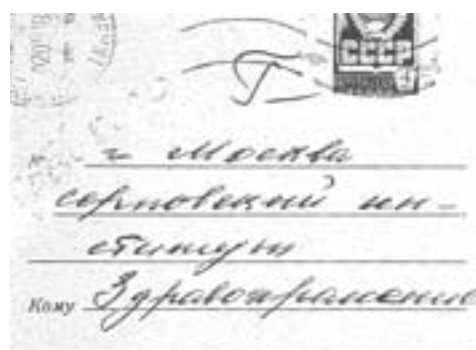 СССР
г Москва
серповский ин-
ститут
Кому Здравоохранения